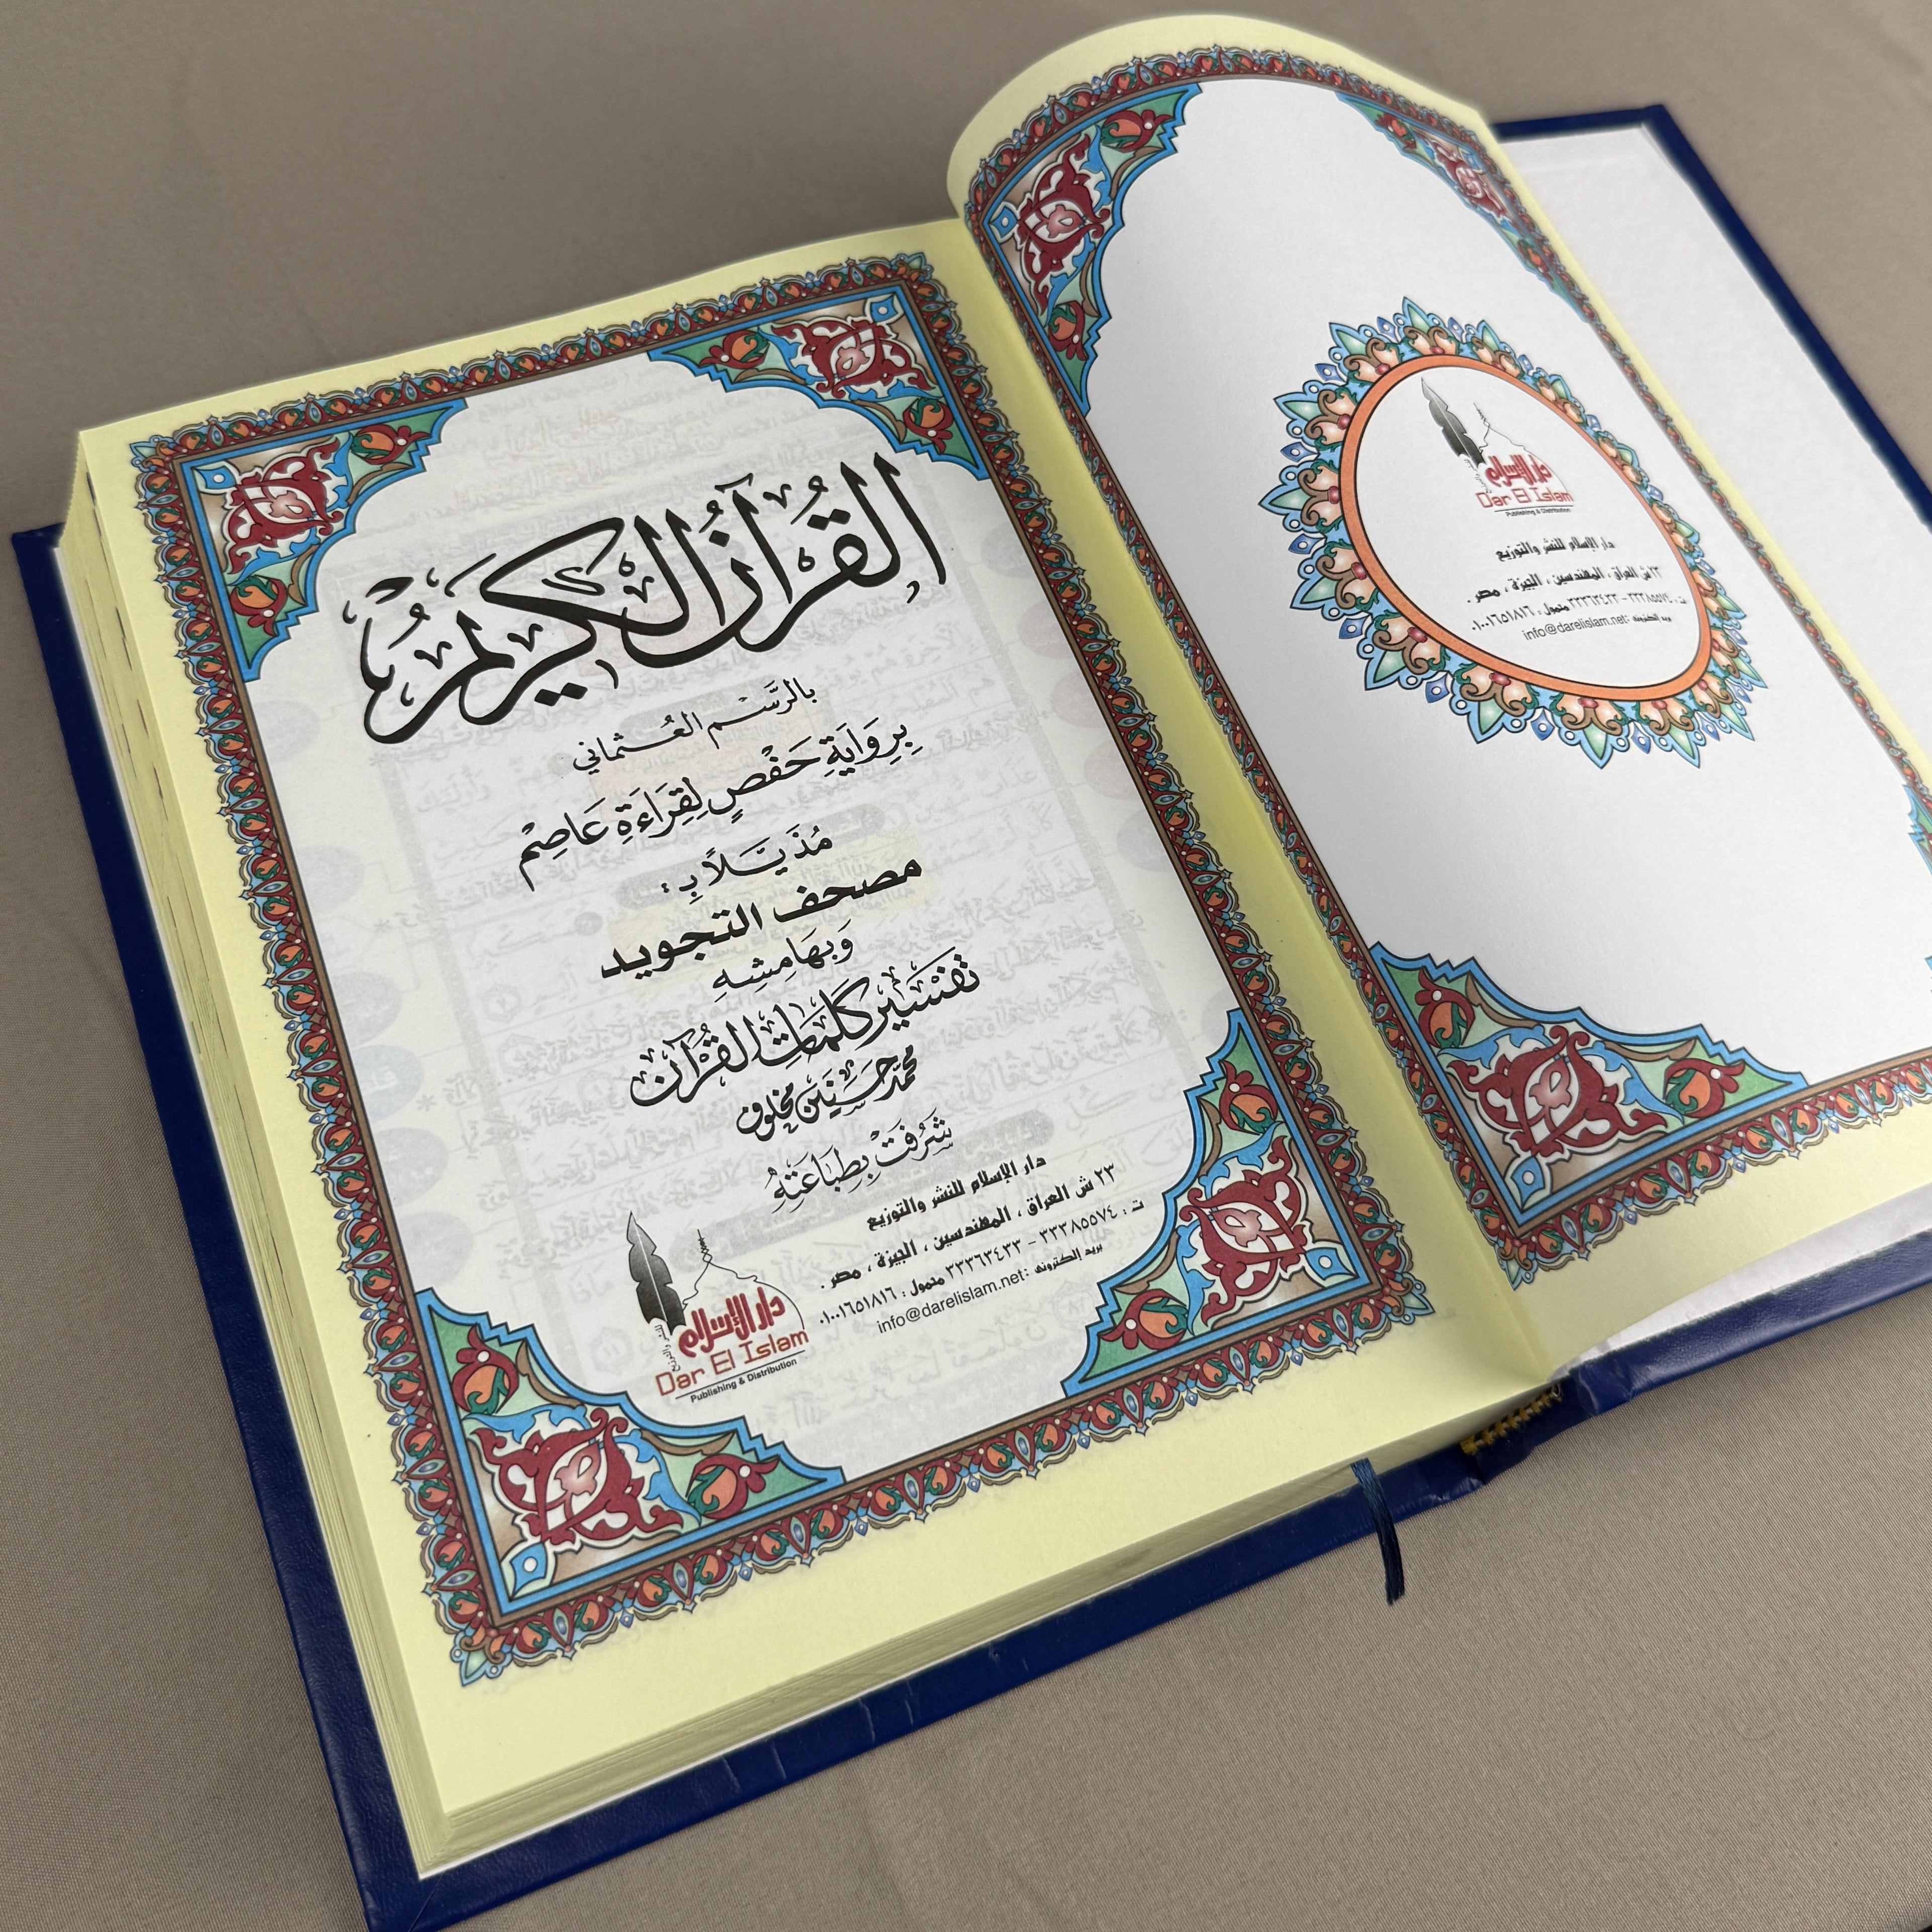 القُرآنُ الكَريمُ
بالرَّسْمِ العُثماني
بِرِوَايَةِ حَفْصٍ لِقِرَاءَةِ عَاصِمْ
مُذَيَّلاً بِ:
مصحف التجويد
وَبهَامِشِهِ
تَفسْير كَلمَات القُرْآن
محمّد حسَنَين مخلوف
شَرُفَتْ بِطِبَاعَتِهُ
دار الإسلام للنشر والتوزيع
٢٣ ش العراق ، المهندسين ، الجيزة ، مصر .
ت : ٣٣٣٨٥٥٧٤ - ٣٣٣٦٣٤٣٣ محمول : ٠١٠٠١٦٥١٨١٦
بريد إلكترونى : info@darelislam.net
دار الإسلام
للنشر والتوزيع
Dar El Islam
Publishing & Distribution
دار الإسلام
Dar El Islam
Publishing & Distribution
دار الإسلام للنشر والتوزيع
٢٣ ش العراق ، المهندسين ، الجيزة ، مصر .
ت : ٣٣٣٨٥٥٧٤ - ٣٣٣٦٣٤٣٣ محمول : ٠١٠٠١٦٥١٨١٦
بريد إلكترونى : info@darelislam.net